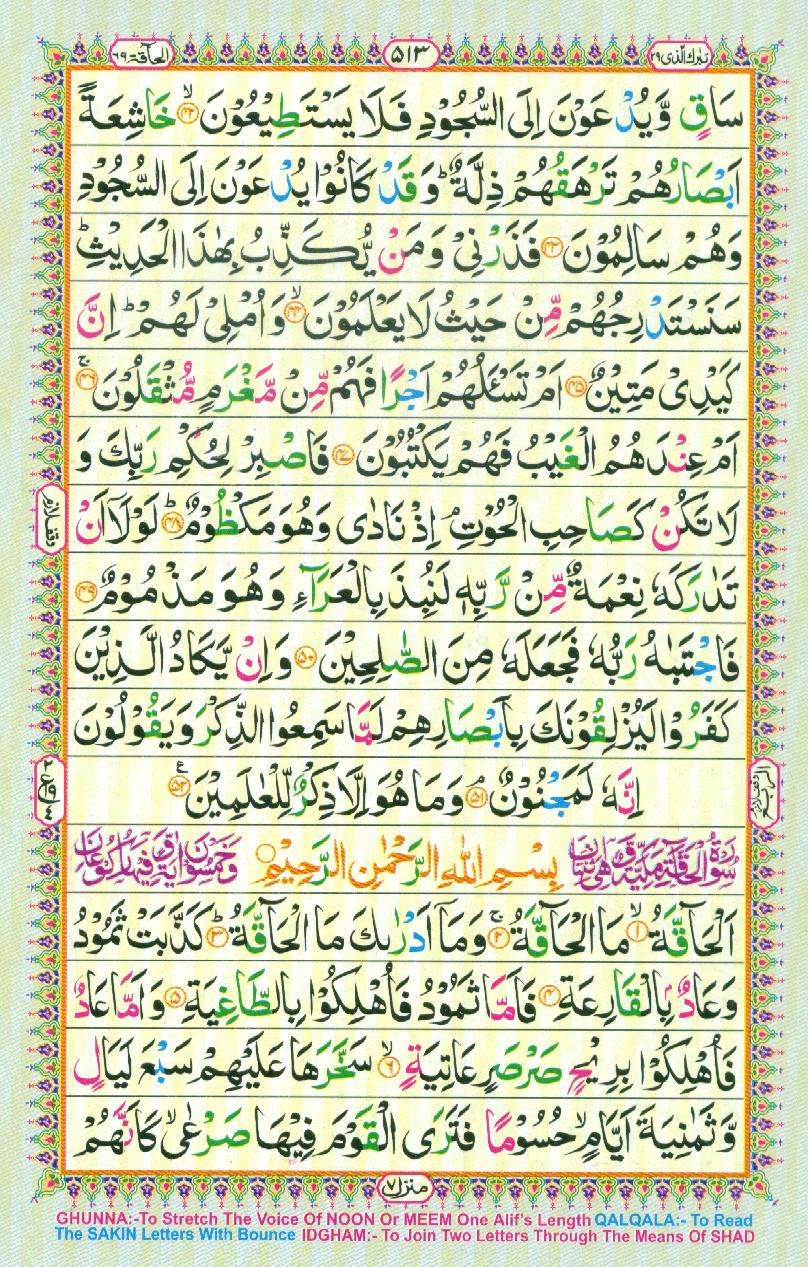 تبٰرك الّذى ٢٩
٥١٣
الحآقة ٦٩
سَاقٍ وَّيُدْعَوْنَ اِلَى السُّجُوْدِ فَلَا يَسْتَطِيْعُوْنَ ۙ﴿٤٢﴾ خَاشِعَةً
اَبْصَارُهُمْ تَرْهَقُهُمْ ذِلَّةٌ ؕ وَقَدْ كَانُوْا يُدْعَوْنَ اِلَى السُّجُوْدِ
وَهُمْ سَالِمُوْنَ ﴿٤٣﴾ فَذَرْنِىْ وَمَنْ يُّكَذِّبُ بِهٰذَا الْحَدِيْثِ ؕ
سَنَسْتَدْرِجُهُمْ مِّنْ حَيْثُ لَا يَعْلَمُوْنَ ۙ﴿٤٤﴾ وَاُمْلِىْ لَهُمْ ؕ اِنَّ
كَيْدِىْ مَتِيْنٌ ﴿٤٥﴾ اَمْ تَسْـَٔلُهُمْ اَجْرًا فَهُمْ مِّنْ مَّغْرَمٍ مُّثْقَلُوْنَ ۚ﴿٤٦﴾
اَمْ عِنْدَهُمُ الْغَيْبُ فَهُمْ يَكْتُبُوْنَ ﴿٤٧﴾ فَاصْبِرْ لِحُكْمِ رَبِّكَ وَ
لَا تَكُنْ كَصَاحِبِ الْحُوْتِ ۘ اِذْ نَادٰى وَهُوَ مَكْظُوْمٌ ؕ﴿٤٨﴾ لَوْلَاۤ اَنْ
تَدٰرَكَهٗ نِعْمَةٌ مِّنْ رَّبِّهٖ لَنُبِذَ بِالْعَرَآءِ وَهُوَ مَذْمُوْمٌ ﴿٤٩﴾
فَاجْتَبٰىهُ رَبُّهٗ فَجَعَلَهٗ مِنَ الصّٰلِحِيْنَ ﴿٥٠﴾ وَاِنْ يَّكَادُ الَّذِيْنَ
كَفَرُوْا لَيُزْلِقُوْنَكَ بِاَبْصَارِهِمْ لَمَّا سَمِعُوا الذِّكْرَ وَيَقُوْلُوْنَ
اِنَّهٗ لَمَجْنُوْنٌ ۘ﴿٥١﴾ وَمَا هُوَ اِلَّا ذِكْرٌ لِّلْعٰلَمِيْنَ ﴿٥٢﴾
سُوْرَةُ الْحَآقَّةِ مَكِّيَّةٌ وَّهِىَ اثْنَتَانِ بِسْمِ اللّٰهِ الرَّحْمٰنِ الرَّحِيْمِ وَخَمْسُوْنَ اٰيَةً وَّفِيْهَا رُكُوْعَانِ
اَلْحَآقَّةُ ۙ﴿١﴾ مَا الْحَآقَّةُ ۚ﴿٢﴾ وَمَاۤ اَدْرٰىكَ مَا الْحَآقَّةُ ؕ﴿٣﴾ كَذَّبَتْ ثَمُوْدُ
وَعَادٌۢ بِالْقَارِعَةِ ﴿٤﴾ فَاَمَّا ثَمُوْدُ فَاُهْلِكُوْا بِالطَّاغِيَةِ ﴿٥﴾ وَاَمَّا عَادٌ
فَاُهْلِكُوْا بِرِيْحٍ صَرْصَرٍ عَاتِيَةٍ ۙ﴿٦﴾ سَخَّرَهَا عَلَيْهِمْ سَبْعَ لَيَالٍ
وَّثَمٰنِيَةَ اَيَّامٍ ۙ حُسُوْمًا فَتَرَى الْقَوْمَ فِيْهَا صَرْعٰى ۙ كَاَنَّهُمْ
منزل ٧
GHUNNA:-To Stretch The Voice Of NOON Or MEEM One Alif's Length QALQALA:- To Read
The SAKIN Letters With Bounce IDGHAM:- To Join Two Letters Through The Means Of SHAD